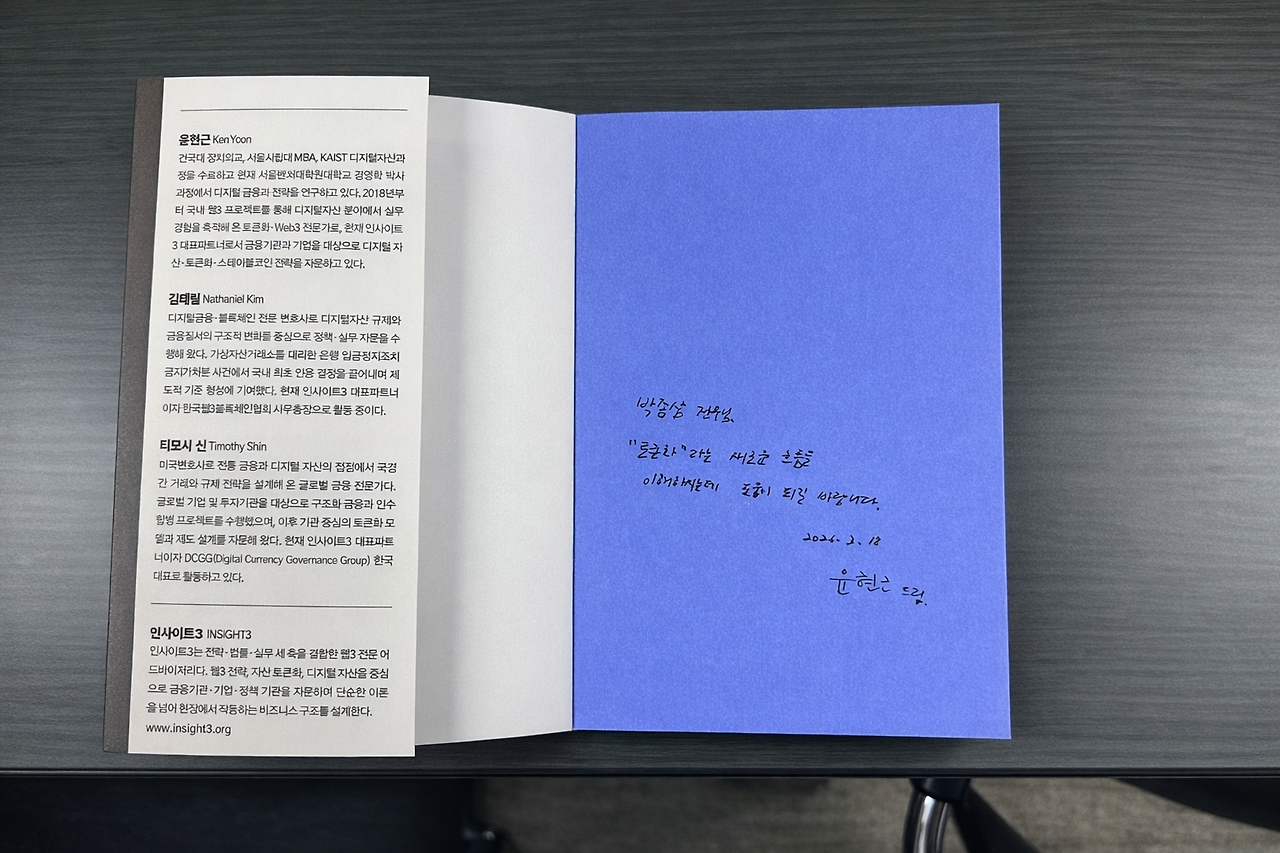 윤현근 Ken Yoon
건국대 정치외교, 서울시립대 MBA, KAIST 디지털자산과
정을 수료하고 현재 서울벤처대학원대학교 경영학 박사
과정에서 디지털 금융과 전략을 연구하고 있다. 2018년부
터 국내 웹3 프로젝트를 통해 디지털자산 분야에서 실무
경험을 축적해 온 토큰화·Web3 전문가로, 현재 인사이트
3 대표파트너로서 금융기관과 기업을 대상으로 디지털 자
산·토큰화·스테이블코인 전략을 자문하고 있다.
김태림 Nathaniel Kim
디지털금융·블록체인 전문 변호사로 디지털자산 규제와
금융질서의 구조적 변화를 중심으로 정책·실무 자문을 수
행해 왔다. 가상자산거래소를 대리한 은행 입금정지조치
금지가처분 사건에서 국내 최초 인용 결정을 끌어내며 제
도적 기준 형성에 기여했다. 현재 인사이트3 대표파트너
이자 한국웹3블록체인협회 사무총장으로 활동 중이다.
티모시 신 Timothy Shin
미국변호사로 전통 금융과 디지털 자산의 접점에서 국경
간 거래와 규제 전략을 설계해 온 글로벌 금융 전문가다.
글로벌 기업 및 투자기관을 대상으로 구조화 금융과 인수
합병 프로젝트를 수행했으며, 이후 기관 중심의 토큰화 모
델과 제도 설계를 자문해 왔다. 현재 인사이트3 대표파트
너이자 DCGG(Digital Currency Governance Group) 한국
대표로 활동하고 있다.
인사이트3 INSIGHT3
인사이트3는 전략·법률·실무 세 축을 결합한 웹3 전문 어
드바이저리다. 웹3 전략, 자산 토큰화, 디지털 자산을 중심
으로 금융기관·기업·정책 기관을 자문하며 단순한 이론
을 넘어 현장에서 작동하는 비즈니스 구조를 설계한다.
www.insight3.org
"토큰화"라는 새로운 흐름을
이해하시는데 도움이 되길 바랍니다.
2026. 3. 18
윤현근 드림.